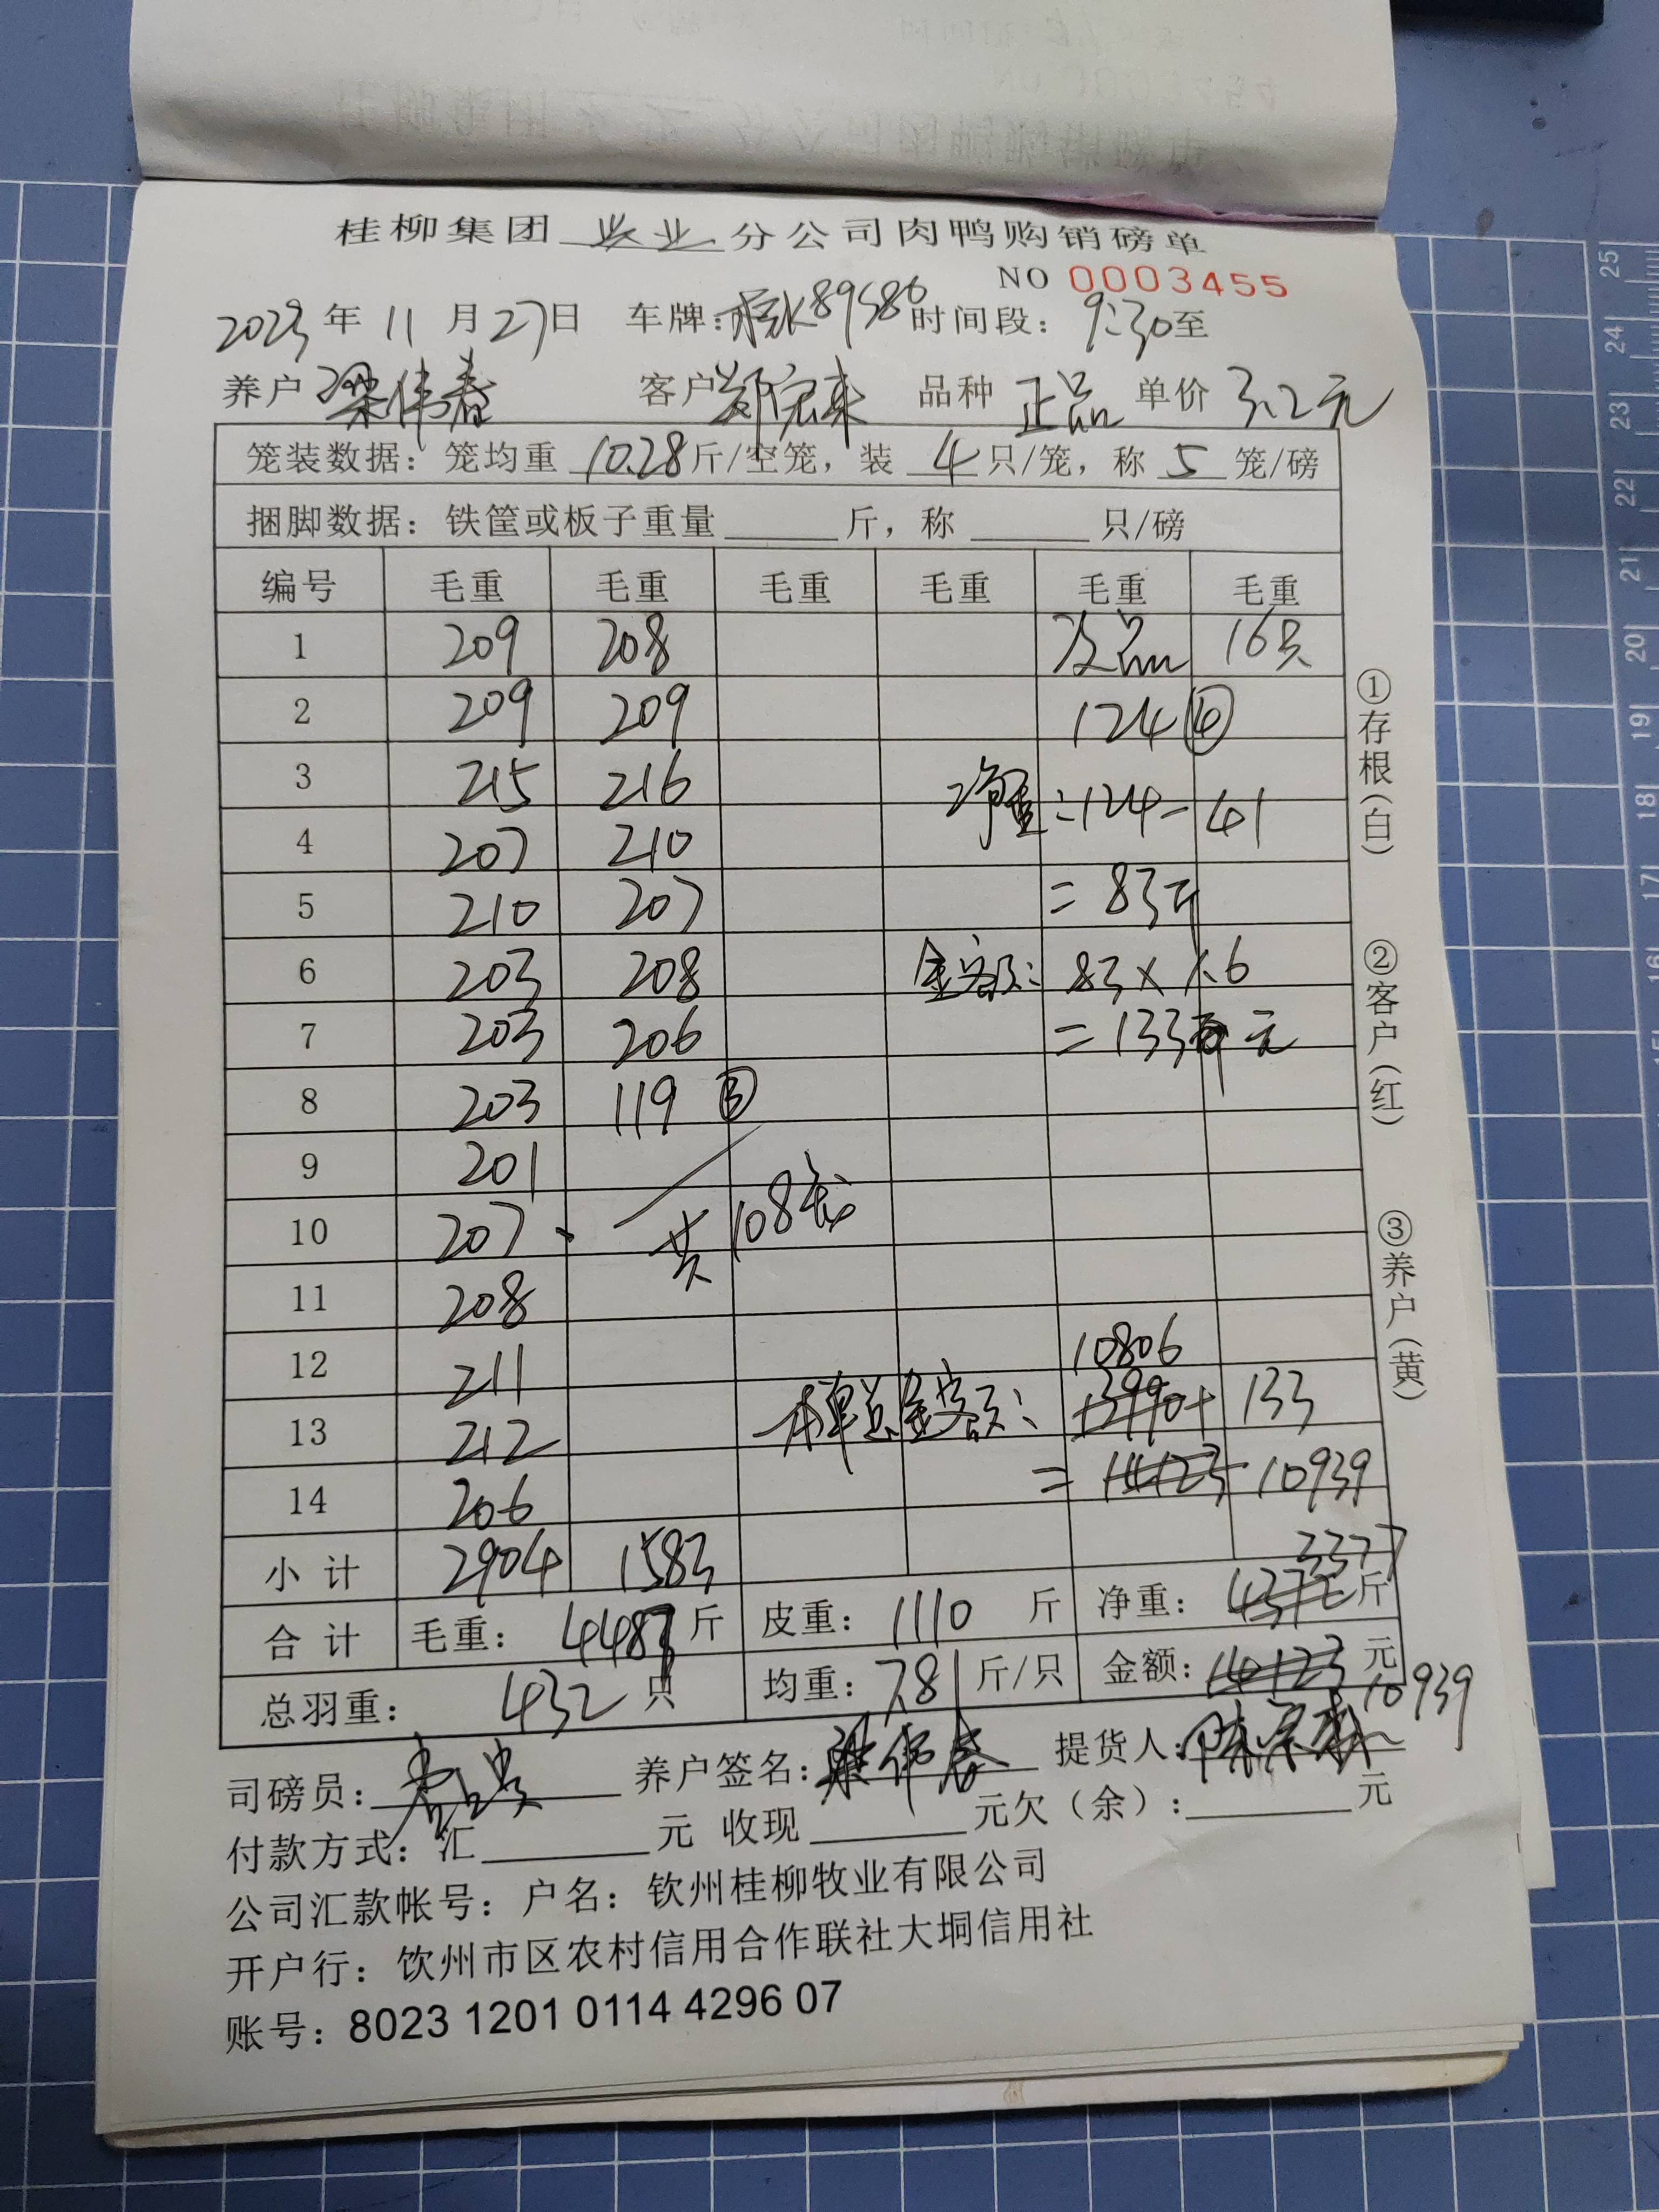 桂柳集团 兴业 分公司肉鸭购销磅单
NO 0003455
2023 年 11 月 27 日 车牌: 桂K89586 时间段: 9:30 至
养户 梁伟春 客户 郑宏来 品种 正品 单价 3.2元
笼装数据: 笼均重 10.28 斤/空笼, 装 4 只/笼, 称 5 笼/磅
捆脚数据: 铁筐或板子重量 ______ 斤, 称 ______ 只/磅
编号 毛重 毛重 毛重 毛重 毛重 毛重
1 209 208 次品 16只
2 209 209 124 ④
3 215 216 净重:124-41
4 207 210
5 210 207 =83斤
6 203 208 金额: 83×1.6
7 203 206 =133元
8 203 119 ③
9 201
10 207 共108笼
11 208
12 211 10806
13 212 本单总金额: 13990+ 133
14 206 = 14123 10939
小计 2904 1583
3377
合计 毛重: 4487 斤 皮重: 1110 斤 净重: 4372 斤
总羽重: 432 只 均重: 7.81 斤/只 金额: 14123 元
10939
司磅员: 养户签名: 梁伟春 提货人:
付款方式: 汇______元 收现______元欠(余):______元
公司汇款帐号: 户名: 钦州桂柳牧业有限公司
开户行: 钦州市区农村信用合作联社大垌信用社
账号: 8023 1201 0114 4296 07
①存根(白) ②客户(红) ③养户(黄)
25
24
23
22
21
20
19
18
17
16
15